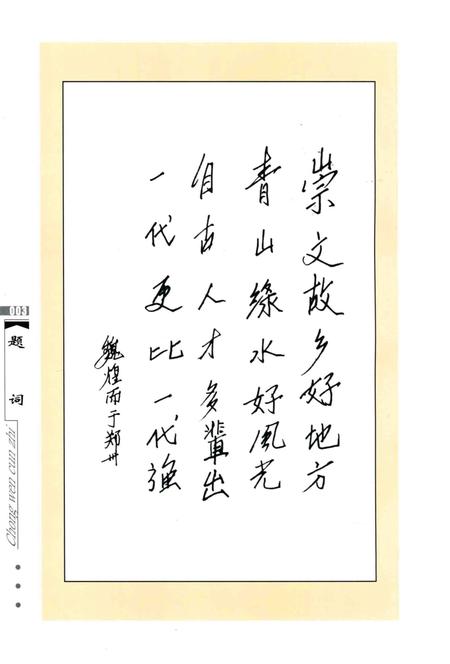 崇文故乡好地方
青山綠水好風光
自古人才多輩出
一代更比一代強
魏煌而于郑州
003
题词
Chong wen cun zhi